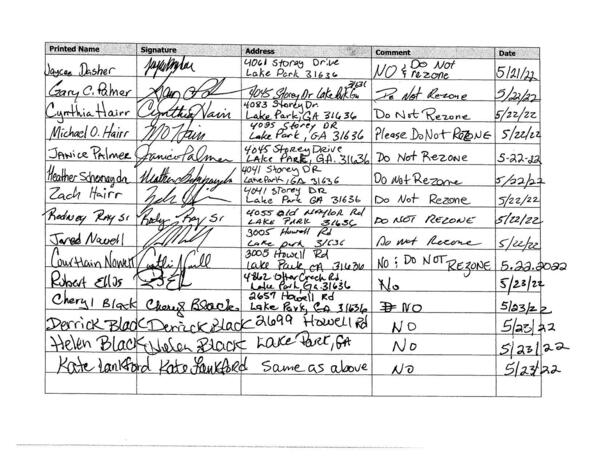 Printed Name Signature Address Comment Date
Jaycee Dasher 4061 Storey Drive Lake Park 31636 NO Do Not & rezone 5/21/22
Gary C. Palmer 4045 Storey Dr Lake Park Ga 31636 Do Not Rezone 5/22/22
Cynthia Hairr Cynthia Hairr 4083 Storey Dr. Lake Park, GA 31636 Do Not Rezone 5/22/22
Michael O. Hairr 4095 Storey DR Lake Park, GA 31636 Please Do Not REZONE 5/22/22
JANICE PALMER Janice Palmer 4045 STOREY DRIVE LAKE PARK, GA. 31636 Do Not Rezone 5-22-22
Heather 4041 Storey DR Lake Park, GA 31636 Do Not Rezone 5/22/22
Zach Hairr 4041 Storey DR Lake Park GA 31636 Do Not Rezone 5/22/22
Rodney Ray Sr Rodney Ray Sr 4055 Old Naylor Rd LAKE PARK 31636 DO NOT REZONE 5/22/22
Jared Nowell 3005 Howell Rd Lake park 31636 Do not Rezone 5/22/22
Nowell 3005 Howell Rd Lake Park GA 31636 NO; DO NOT REZONE 5.22.2022
Robert Ellis 4862 Otter Creek Rd Lake Park Ga 31636 No 5/23/22
Cheryl Black Cheryl Black 2657 Howell Rd Lake Park, GA 31636 NO 5/23/22
Derrick Black Derrick Black 2699 Howell Rd NO 5/23/22
Helen Black Helen Black Lake Park, GA No 5/23/22
Kate Lankford Kate Lankford Same as above NO 5/23/22